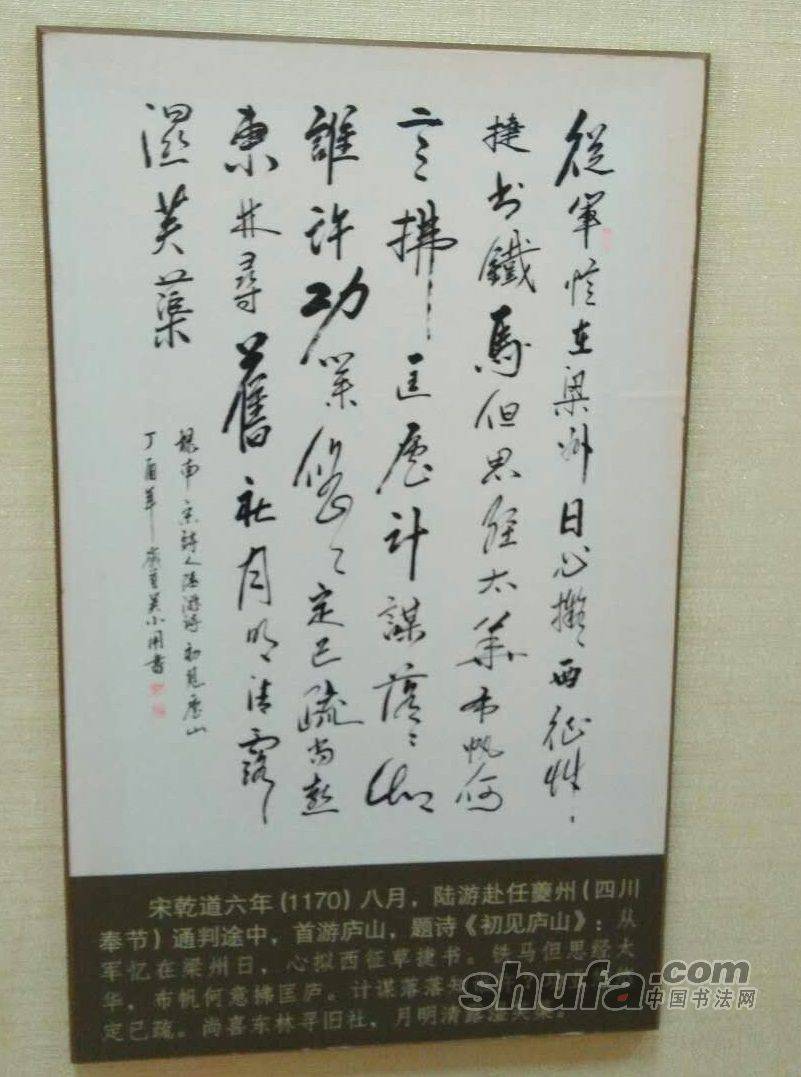 從軍憶在梁州日心擬西征
捷书鐵馬但思經太華布帆何
意拂匡廬計謀落〻知
誰許功業悠〻定已疏尚喜
東林尋舊社月明清露
濕芙蕖
錄南宋詩人陸游詩初見廬山
丁酉年吴小用書
宋乾道六年(1170)八月，陆游赴任夔州(四川
奉节)通判途中，首游庐山，题诗《初见庐山》：从
军忆在梁州日，心拟西征草捷书。铁马但思经太
华，布帆何意拂匡庐。计谋落落知
定已疏。尚喜东林寻旧社，月明清露湿芙蕖。
shufa.com
中国书法网